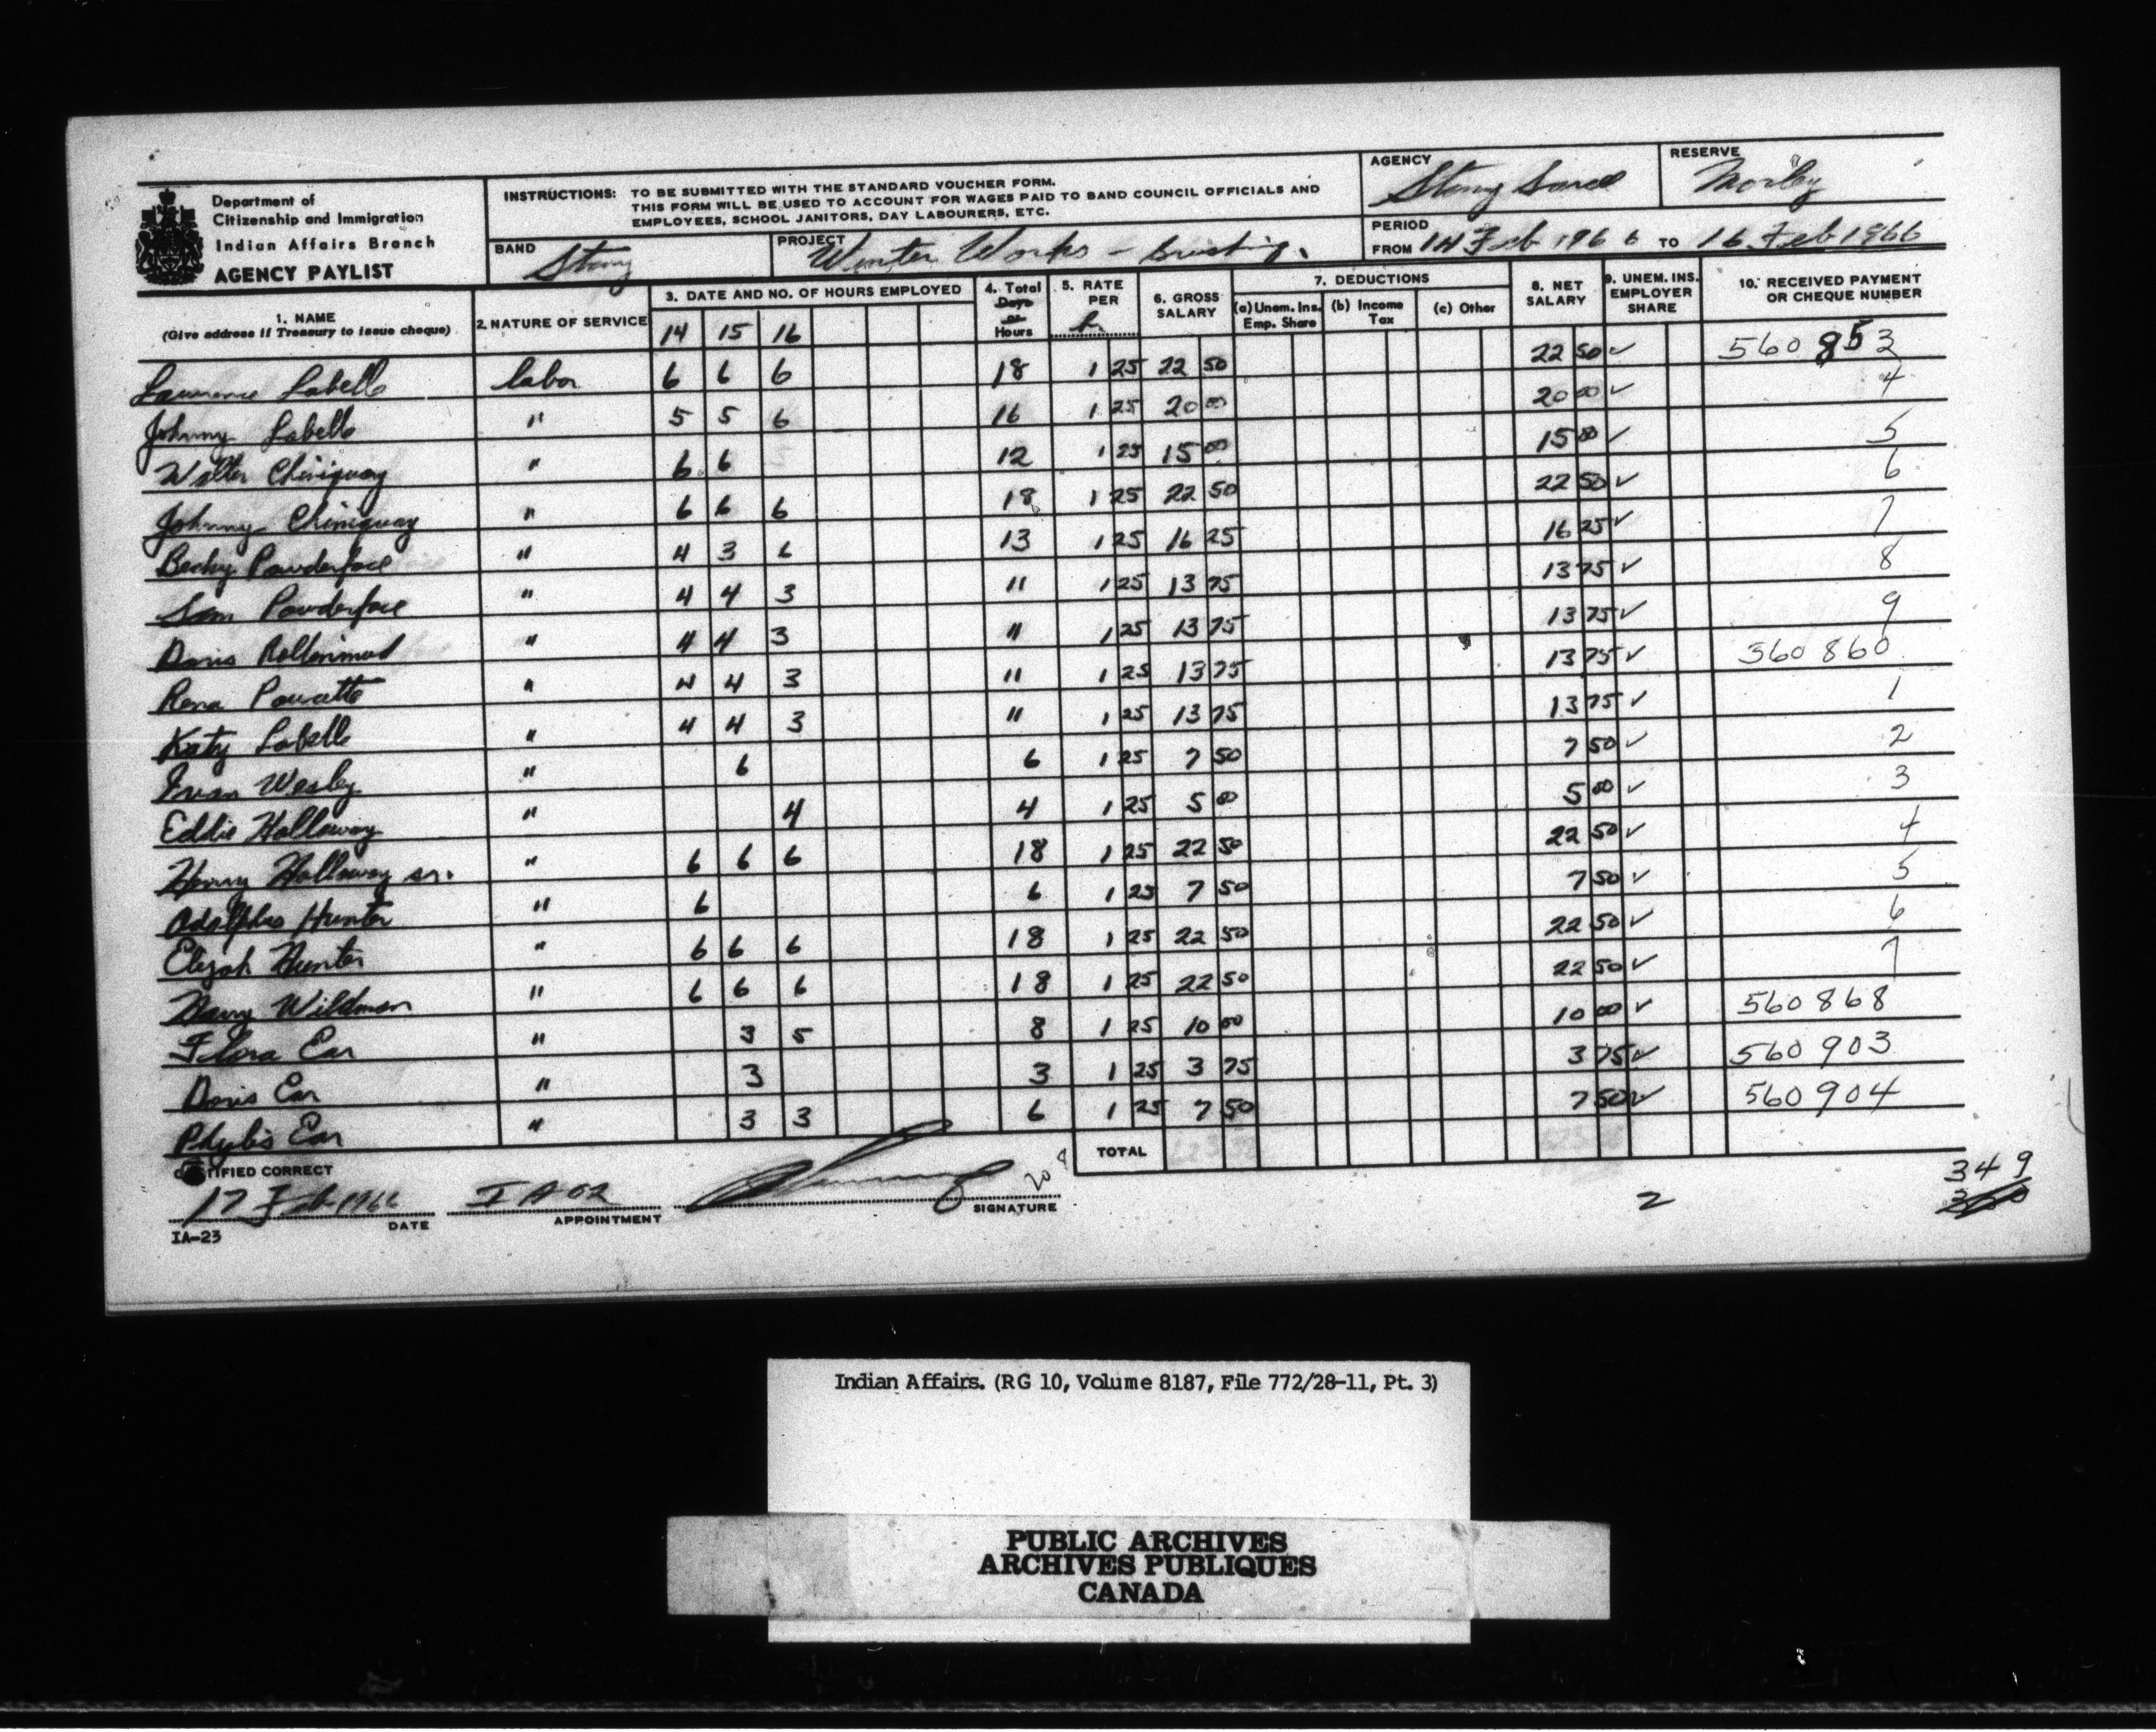 Department of
Citizenship and Immigration
Indian Affairs Branch
AGENCY PAYLIST
INSTRUCTIONS: TO BE SUBMITTED WITH THE STANDARD VOUCHER FORM.
THIS FORM WILL BE USED TO ACCOUNT FOR WAGES PAID TO BAND COUNCIL OFFICIALS AND
EMPLOYEES, SCHOOL JANITORS, DAY LABOURERS, ETC.
AGENCY Stony Sarcee
RESERVE Morley
BAND Stony
PROJECT Winter Works - Brushing.
PERIOD
FROM 14 Feb 1966 TO 16 Feb 1966
1. NAME
(Give address if Treasury to issue cheque)
2. NATURE OF SERVICE
3. DATE AND NO. OF HOURS EMPLOYED
14 15 16
4. Total
Days
or
Hours
5. RATE
PER
hr
6. GROSS
SALARY
7. DEDUCTIONS
(a) Unem. Ins.
Emp. Share
(b) Income
Tax
(c) Other
8. NET
SALARY
9. UNEM. INS.
EMPLOYER
SHARE
10. RECEIVED PAYMENT
OR CHEQUE NUMBER
Lawrence Labelle labor 6 6 6 18 1 25 22 50 22 50 ✓ 560853
Johnny Labelle " 5 5 6 16 1 25 20 00 20 00 ✓ 4
Walter Chiniquay " 6 6 12 1 25 15 00 15 00 ✓ 5
Johnny Chiniquay " 6 6 6 18 1 25 22 50 22 50 ✓ 6
Becky Powderface " 4 3 6 13 1 25 16 25 16 25 ✓ 7
Sam Powderface " 4 4 3 11 1 25 13 75 13 75 ✓ 8
Doris Rollinmud " 4 4 3 11 1 25 13 75 13 75 ✓ 9
Rena " 4 4 3 11 1 25 13 75 13 75 ✓ 360860
Katy Labelle " 4 4 3 11 1 25 13 75 13 75 ✓ 1
Wesley " 6 6 1 25 7 50 7 50 ✓ 2
Eddie Holloway " 4 4 1 25 5 00 5 00 ✓ 3
Henry Holloway sr. " 6 6 6 18 1 25 22 50 22 50 ✓ 4
Adolphus Hunter " 6 6 1 25 7 50 7 50 ✓ 5
Elijah Hunter " 6 6 6 18 1 25 22 50 22 50 ✓ 6
Harry Wildman " 6 6 6 18 1 25 22 50 22 50 ✓ 7
Flora Ear " 3 5 8 1 25 10 00 10 00 ✓ 560868
Doris Ear " 3 3 1 25 3 75 3 75 ✓ 560903
Phylis Ear " 3 3 6 1 25 7 50 7 50 ✓ 560904
TOTAL
CERTIFIED CORRECT
17 Feb 1966
DATE
APPOINTMENT
SIGNATURE
208
2
349
IA-23
Indian Affairs. (RG 10, Volume 8187, File 772/28-11, Pt. 3)
PUBLIC ARCHIVES
ARCHIVES PUBLIQUES
CANADA